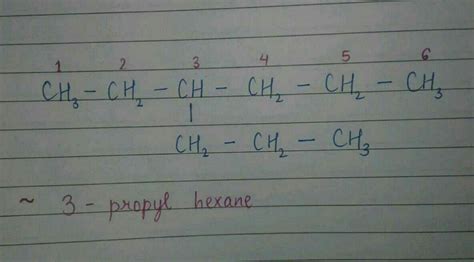 1 2 3 4 5 6
CH₃ – CH₂ – CH – CH₂ – CH₂ – CH₃
|
CH₂ – CH₂ – CH₃
~ 3 - propyl hexane